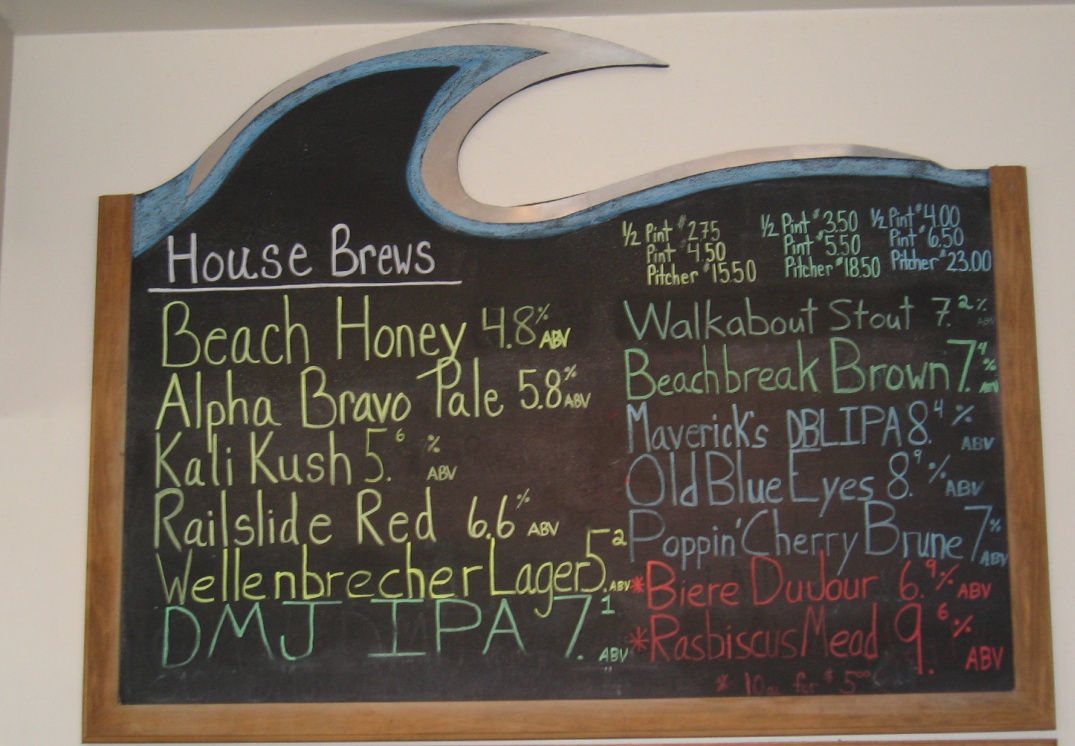 House Brews
Beach Honey 4.8% ABV
Alpha Bravo Pale 5.8% ABV
Kali Kush 5.6% ABV
Railslide Red 6.6% ABV
Wellenbrecher Lager 5.2 ABV
DMJ IPA 7.1 ABV
1/2 Pint $2.75
Pint $4.50
Pitcher $15.50
1/2 Pint $3.50
Pint $5.50
Pitcher $18.50
1/2 Pint $4.00
Pint $6.50
Pitcher $23.00
Walkabout Stout 7.2% ABV
Beachbreak Brown 7.4% ABV
Maverick's DBL IPA 8.4% ABV
Old Blue Eyes 8.9% ABV
Poppin' Cherry Brune 7% ABV
*Biere DuJour 6.9% ABV
*Rasbiscus Mead 9.6% ABV
* 10oz for $5.00